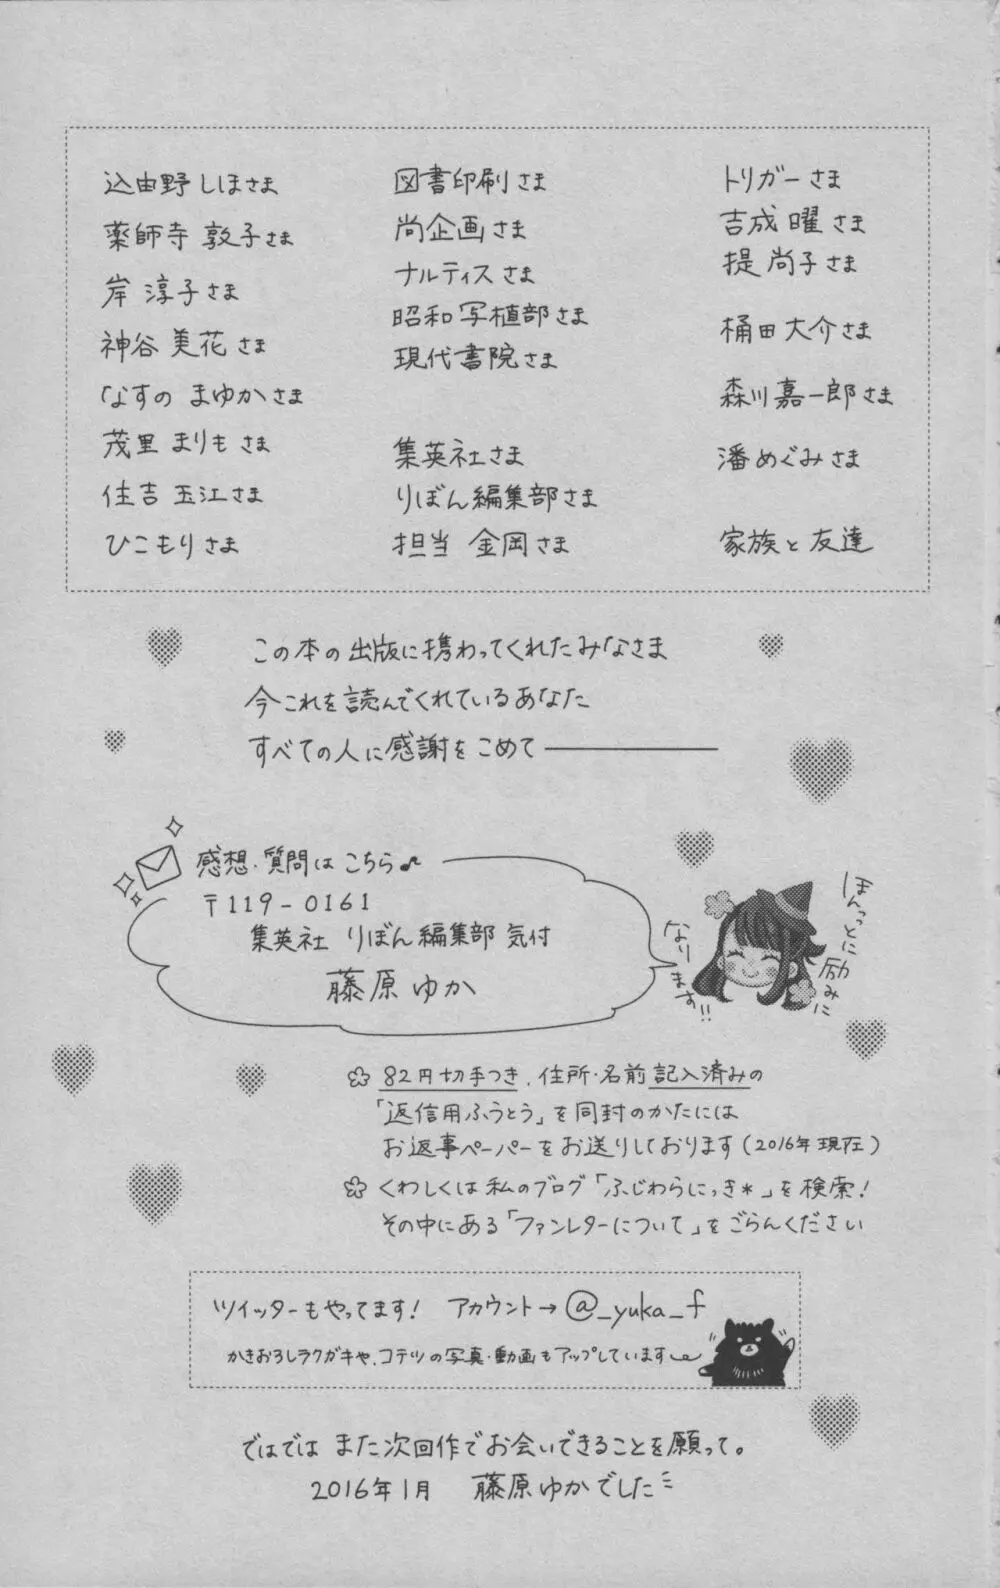 込由野 しほさま
薬師寺 敦子さま
岸 淳子さま
神谷 美花さま
なすの まゆかさま
茂里 まりもさま
住吉 玉江さま
ひこもりさま
図書印刷さま
尚企画さま
ナルティスさま
昭和写植部さま
現代書院さま
集英社さま
りぼん編集部さま
担当 金岡さま
トリガーさま
吉成 曜さま
提 尚子さま
桶田 大介さま
森川 嘉一郎さま
潘 めぐみさま
家族と 友達
この本の出版に携わってくれたみなさま
今これを読んでくれているあなた
すべての人に感謝をこめて――――
感想・質問は こちら♪
〒119-0161
集英社 りぼん編集部 気付
藤原 ゆか
ほんっとに
励みに
なります!!
82円切手つき、住所・名前記入済みの
「返信用ふうとう」を同封のかたには
お返事ペーパーをお送りしております(2016年現在)
くわしくは私のブログ「ふじわらにっき*」を検索!
その中にある「ファンレターについて」をごらんください
ツイッターもやってます! アカウント→@_yuka_f
かきおろしラクガキや、コテツの写真・動画もアップしています
ではでは また次回作でお会いできることを願って。
2016年1月 藤原ゆかでした